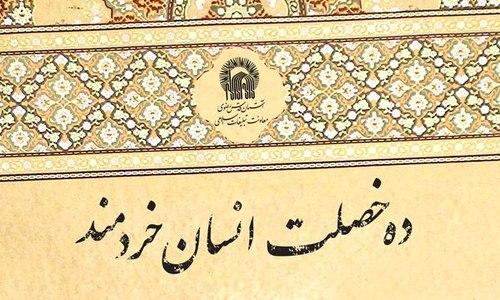 آستان قدس رضوی
معاونت تبلیغات اسلامی
ده خصلت انسان خردمند